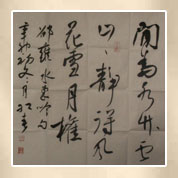 閒為水竹雲
山主靜得風
花雪月權
邵雍 吟句
辛卯